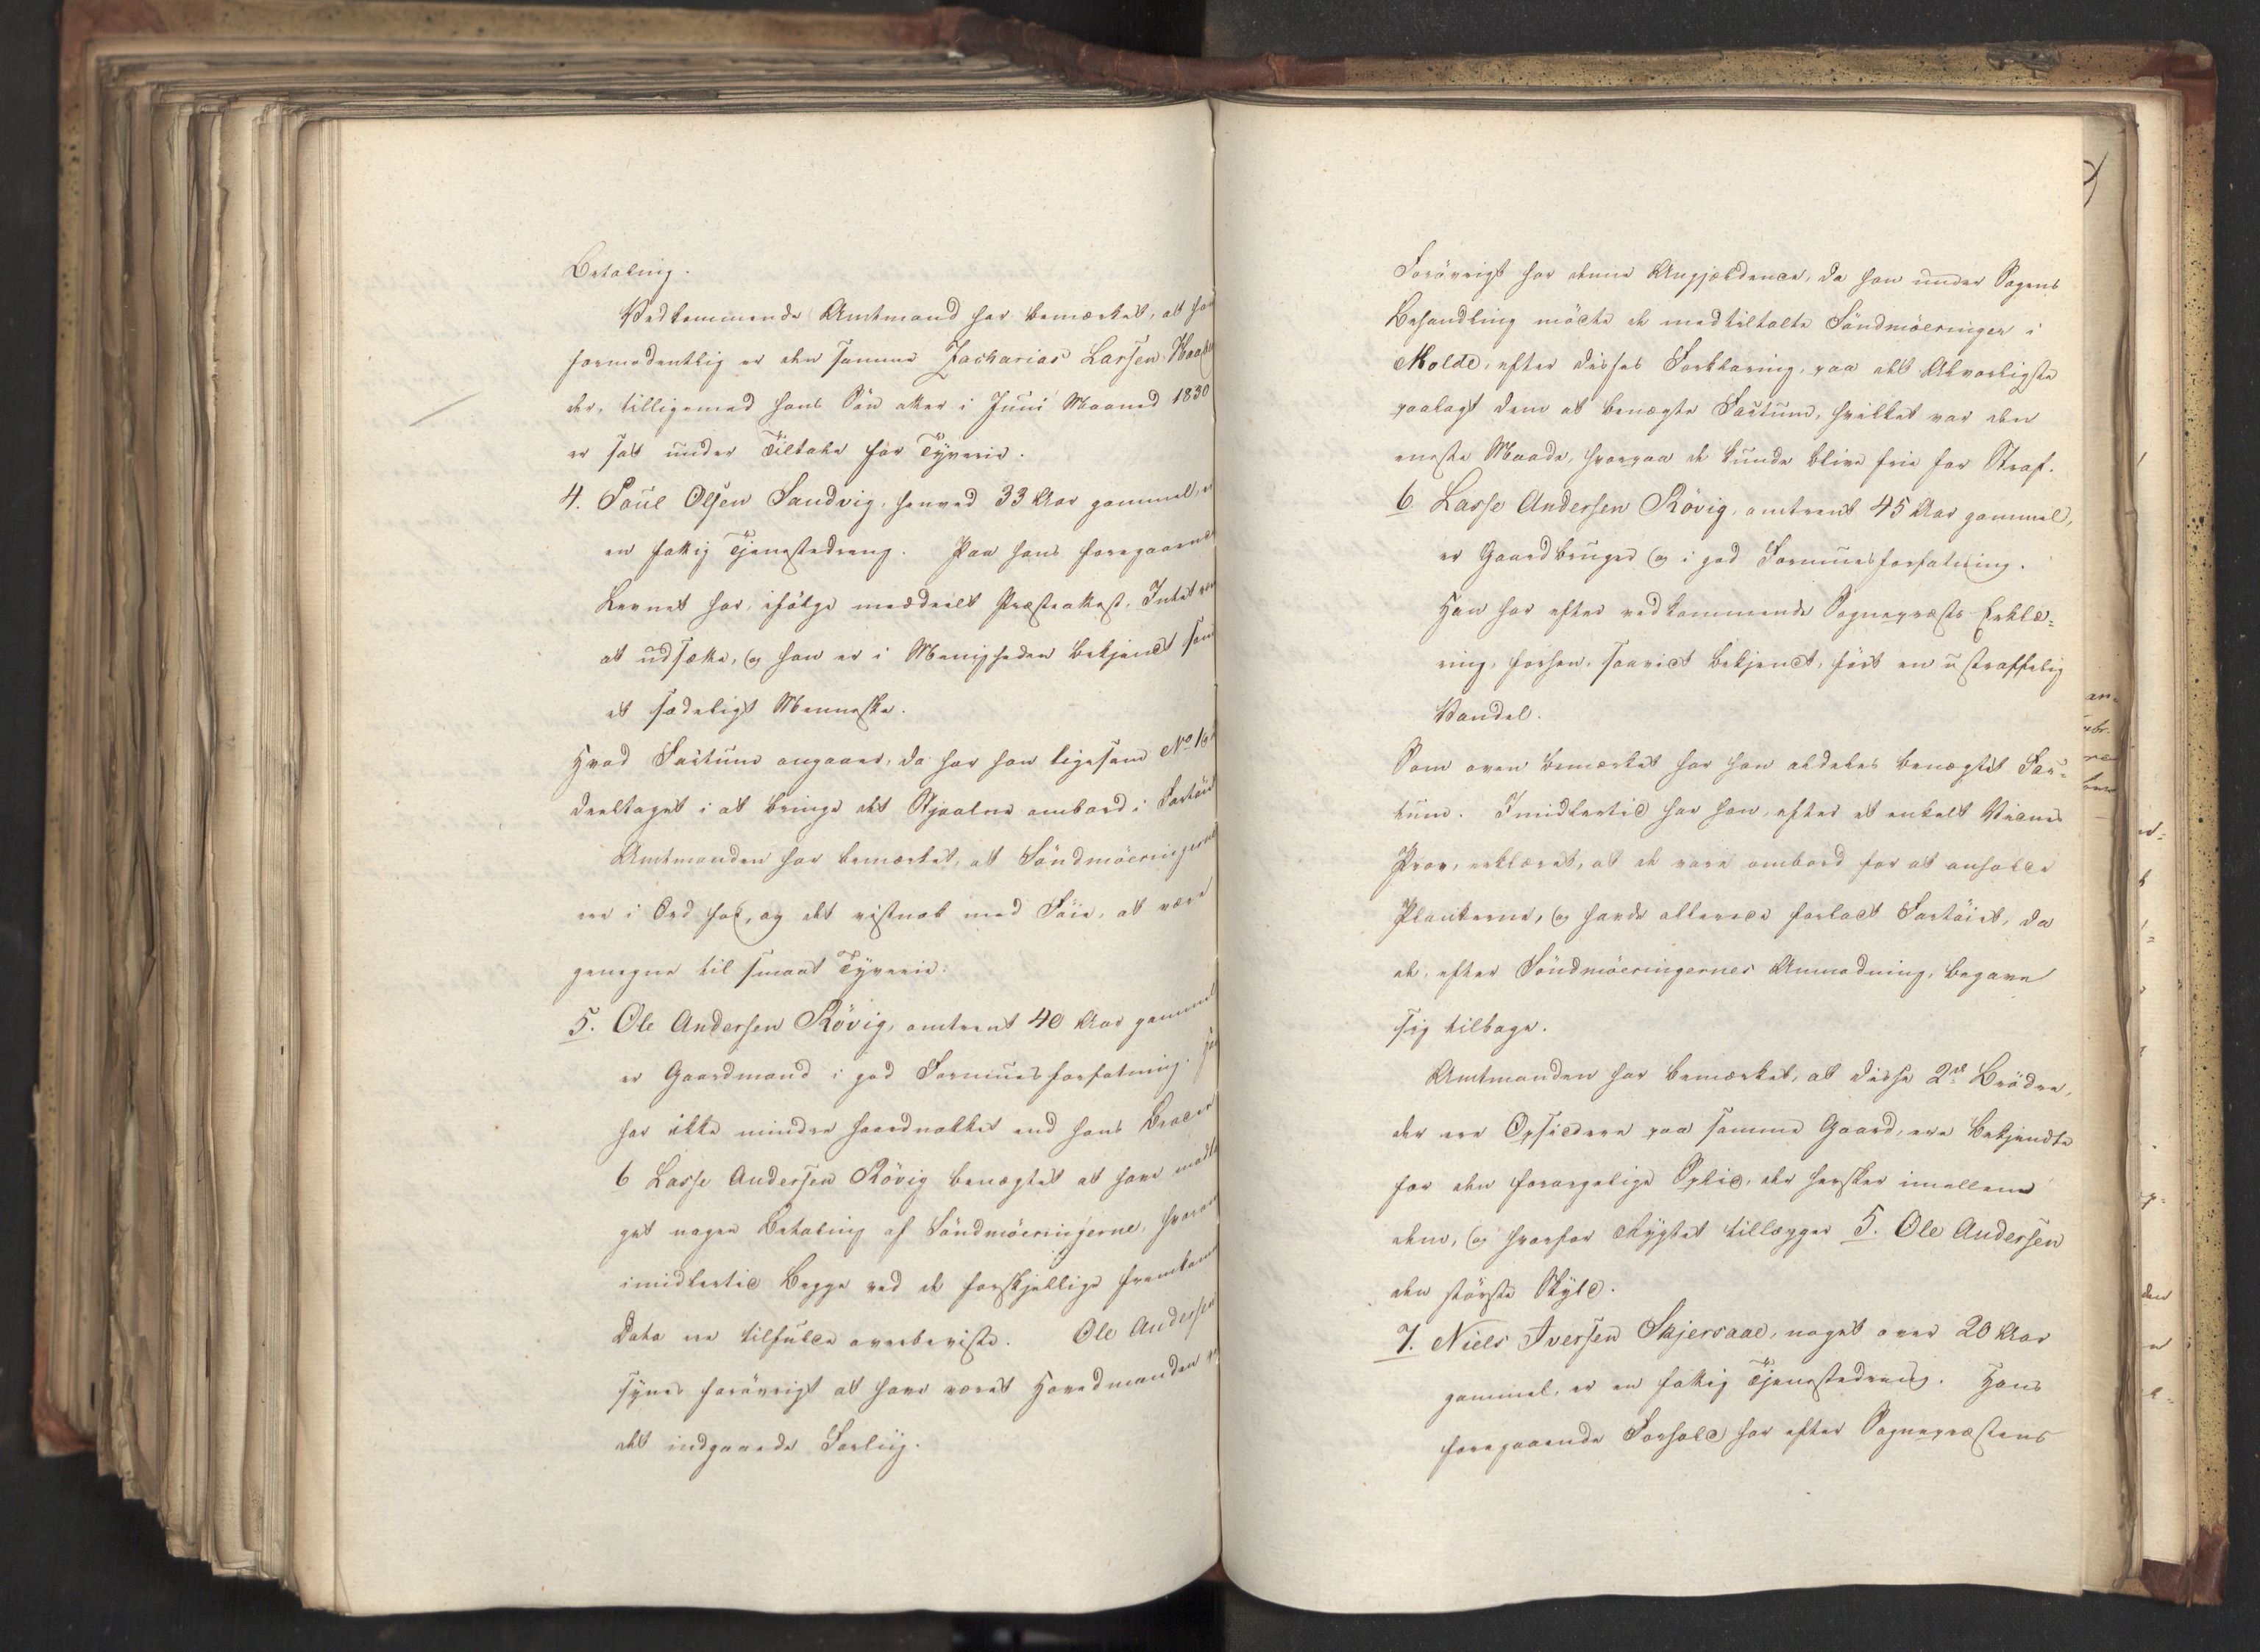 Betaling.
Vedkommende Amtmand har bemærket, at han
formodentlig er den samme Zacharias Larsen
der, tilligemed hans Søn atter i Juni Maaned 1830
er sat under Tiltale for Tyverie.
4. Poul Olsen Sandvig, henved 33 Aar gammel, er
en fattig Tjenestedreng. Paa hans foregaaende
Levnet har, ifølge meddeelt Præsteattest, Intet været
at udsætte, og han er i Menigheden bekjendt som
et sædeligt Menneske.
Hvad Factum angaaer, da har han ligesom No 1
deeltaget i at bringe det Stjaalne ombord i Fartøiet
Amtmanden har bemærket, at Söndmöeringerne
ere i Ord for, og det vistnok med Föie, at være
genegne til smaat Tyverie.
5. Ole Andersen Rövig, omtrent 40 Aar gammel
er Gaardmand i god Formuesforfatning. Han
har ikke mindre haardnakket end hans Broder
6 Lasse Andersen Rövig benægtet at have modta-
get nogen Betaling af Söndmöeringerne, hvorom
imidlertid Begge ved de forskjellige fremkomne
Data ere tilfulde overbeviste. Ole Andersen
synes forövrigt at have været Hovedmanden ved
det indgaaede Forliig.
Forövrigt har denne Angjældende, da han under Sagens
Behandling mödte de medtiltalte Söndmöeringer i
Molde, efter disses Forklaring, paa det Alvorligste
paalagt dem at benægte Factum, hvilket var den
eneste Maade, hvorpaa de kunde blive frie for Straf.
6. Lasse Andersen Rövig, omtrent 45 Aar gammel,
er Gaardbruger og i god Formuesforfatning.
Han har efter vedkommende Sognepræsts Erklæ-
ring, forhen, saavidt bekjendt, fört en ustraffelig
Vandel.
Som oven bemærket har han aldeles benægtet Fac-
tum. Imidlertid har han, efter et enkelt Vidnes
Prov, erklæret, at de vare ombord for at anholde
Plankerne, og havde allerede forladt Fartöiet, da
de, efter Söndmöeringernes Anmodning, begave
sig tilbage.
Amtmanden har bemærket, at disse 2de Brödre,
der ere Opsiddere paa samme Gaard, ere bekjendte
for den forargelige Splid, der hersker imellem
dem, og hvorfor Rygtet tillægger 5. Ole Andersen
den störste Skyld.
7. Niels Iversen Skjervaae, noget over 20 Aar
gammel, er en fattig Tjenestedreng. Hans
foregaaende Forhold har efter Sognepræstens